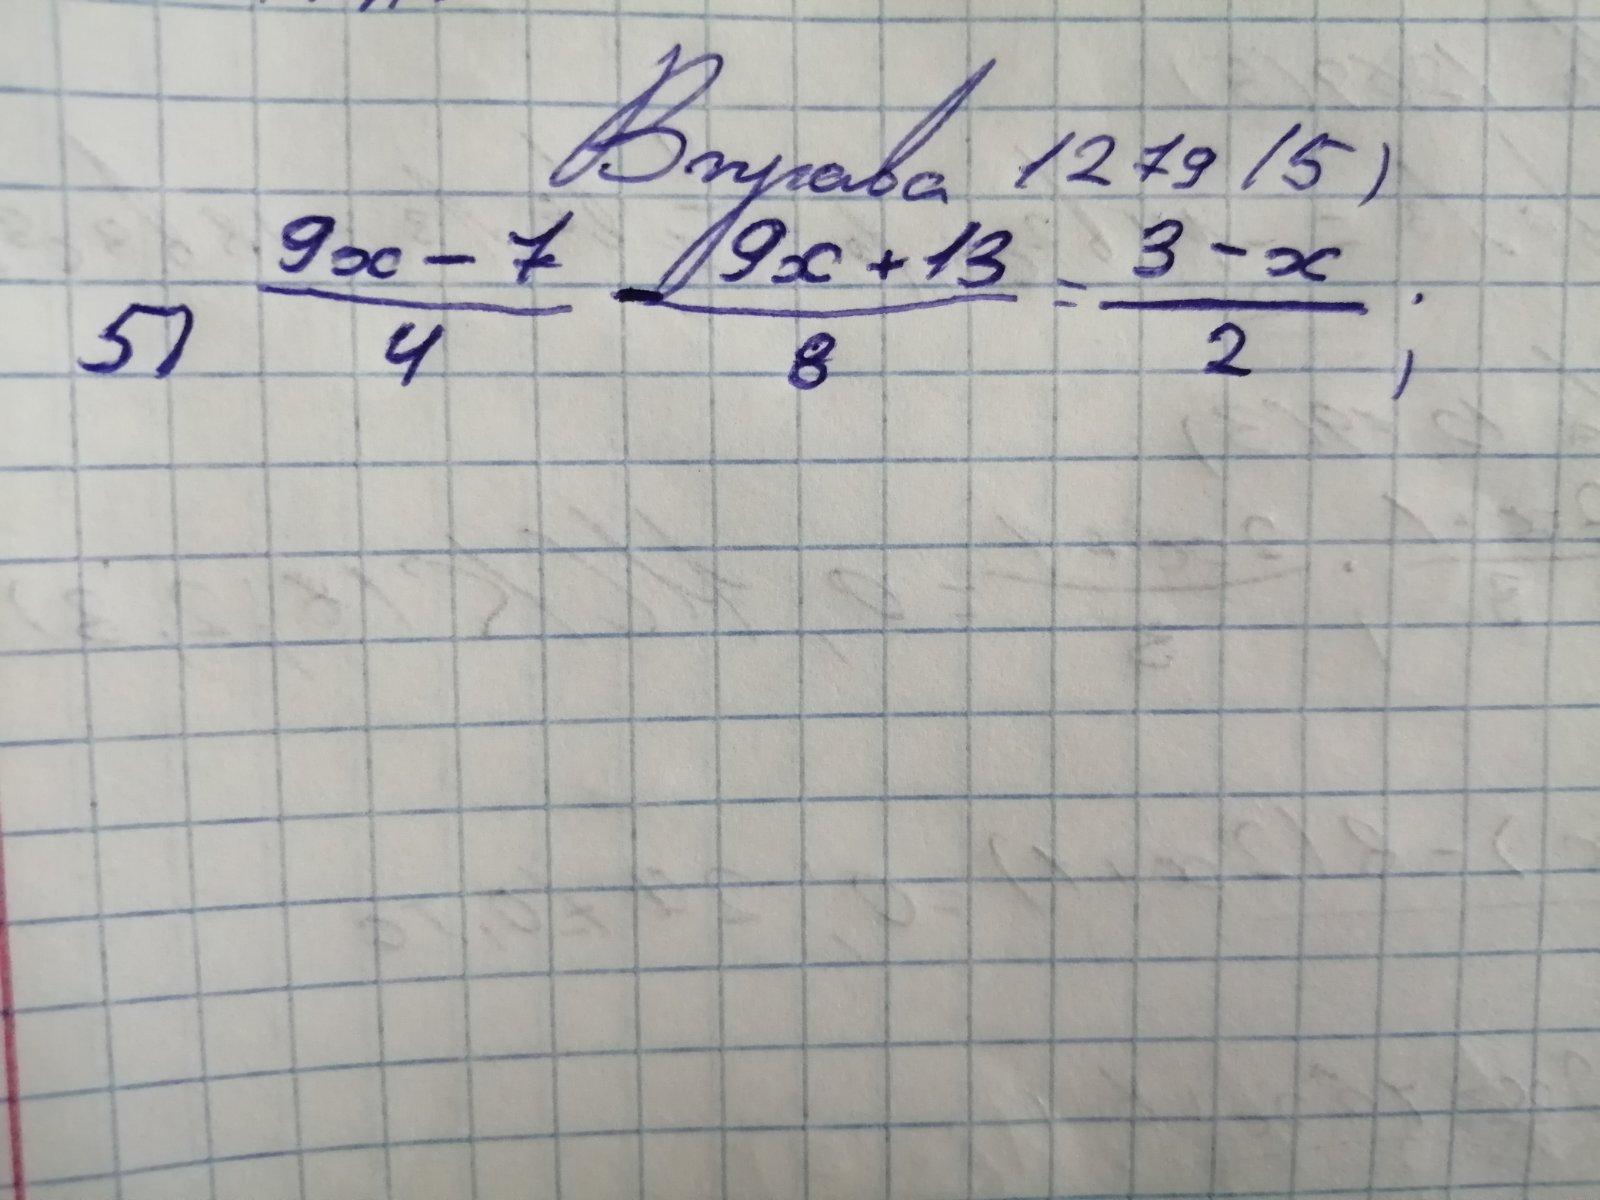 Вправа 1279 (5)
5) (9x - 7)/4 - (9x + 13)/8 = (3 - x)/2;